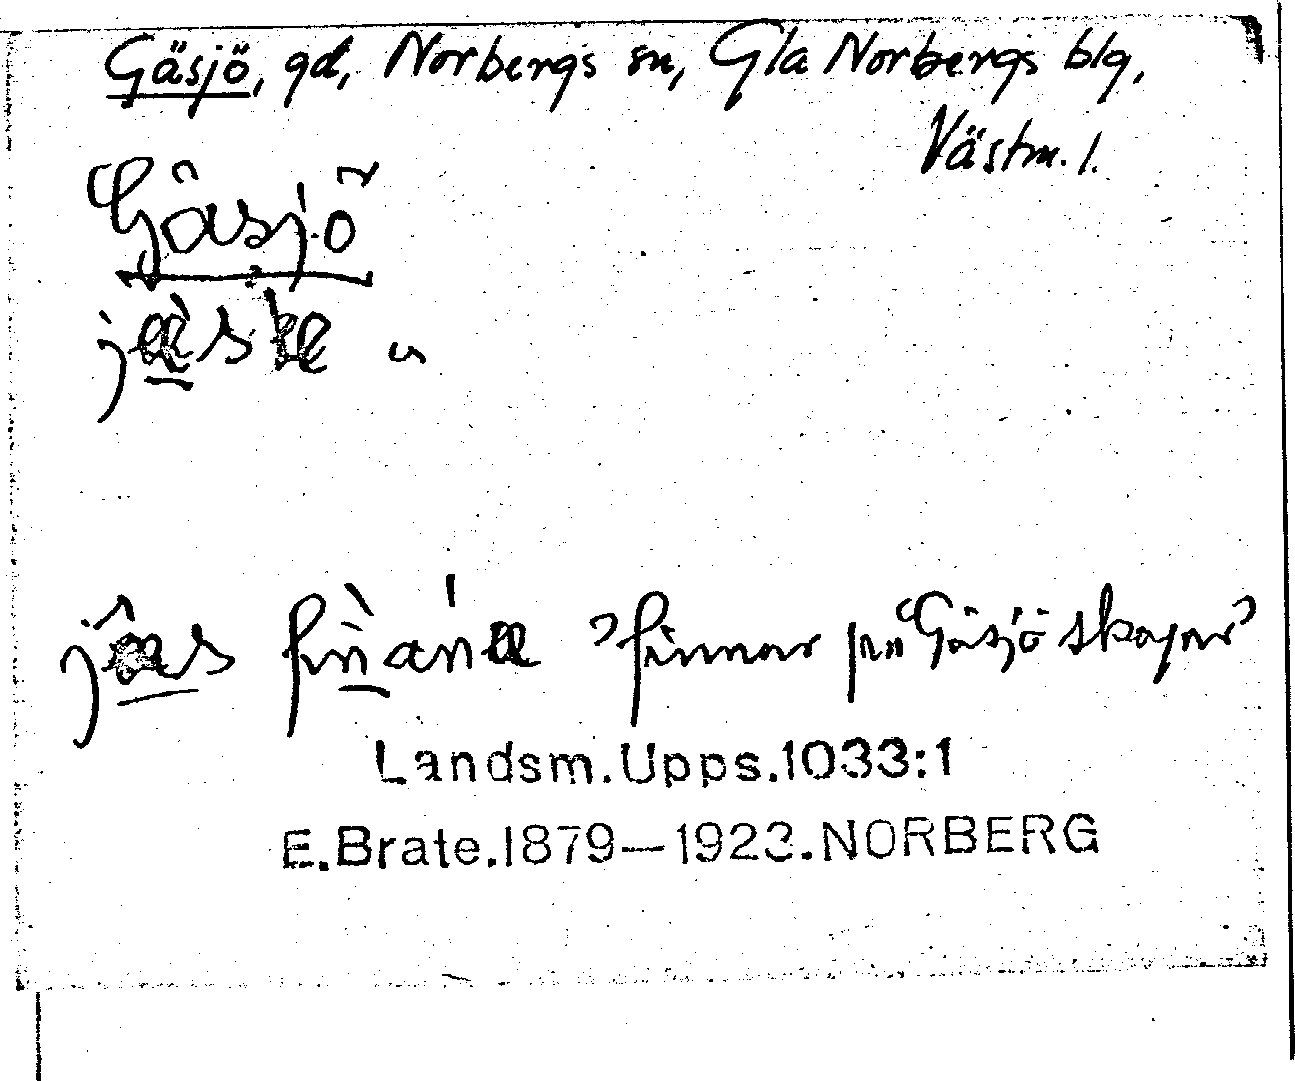 Gäsjö, gd, Norbergs sn, Gla Norbergs blg,
Västm. l.
Gäsjö
finnar på Gäsjö skogar
Landsm.Upps.1033:1
E.Brate.1879—1923.NORBERG